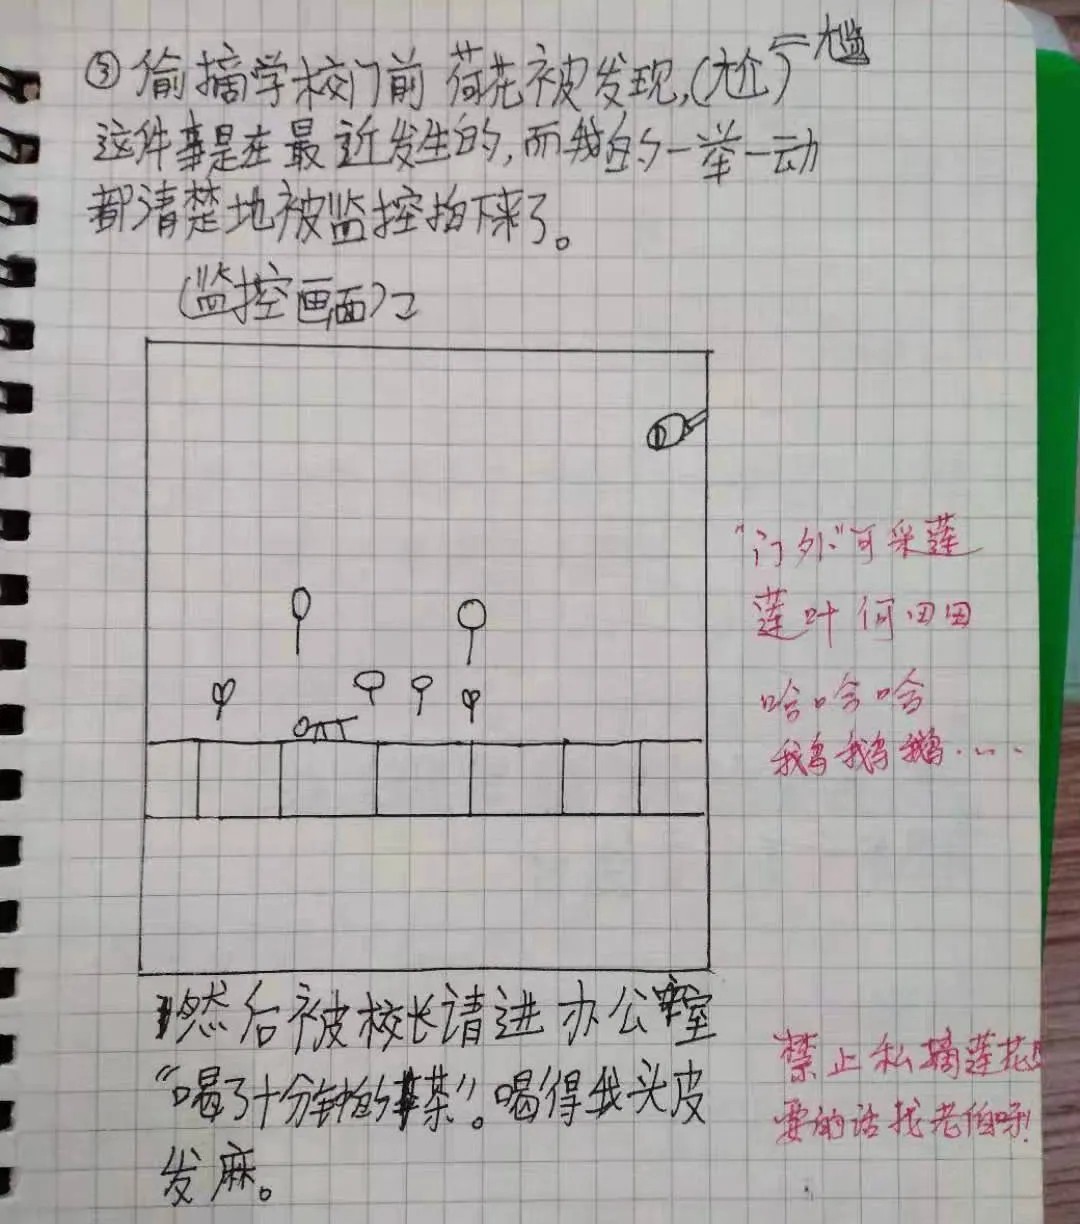 ③偷摘学校门前荷花被发现,(尬)尴
这件事是在最近发生的,而我的一举一动
都清楚地被监控拍下来了。
(监控画面)
"门外"可采莲
莲叶何田田
哈哈哈
鹅鹅鹅……
然后被校长请进办公室
"喝了十分钟的茶"。喝得我头皮
发麻。
禁止私摘莲花
要的话找老伯呀!